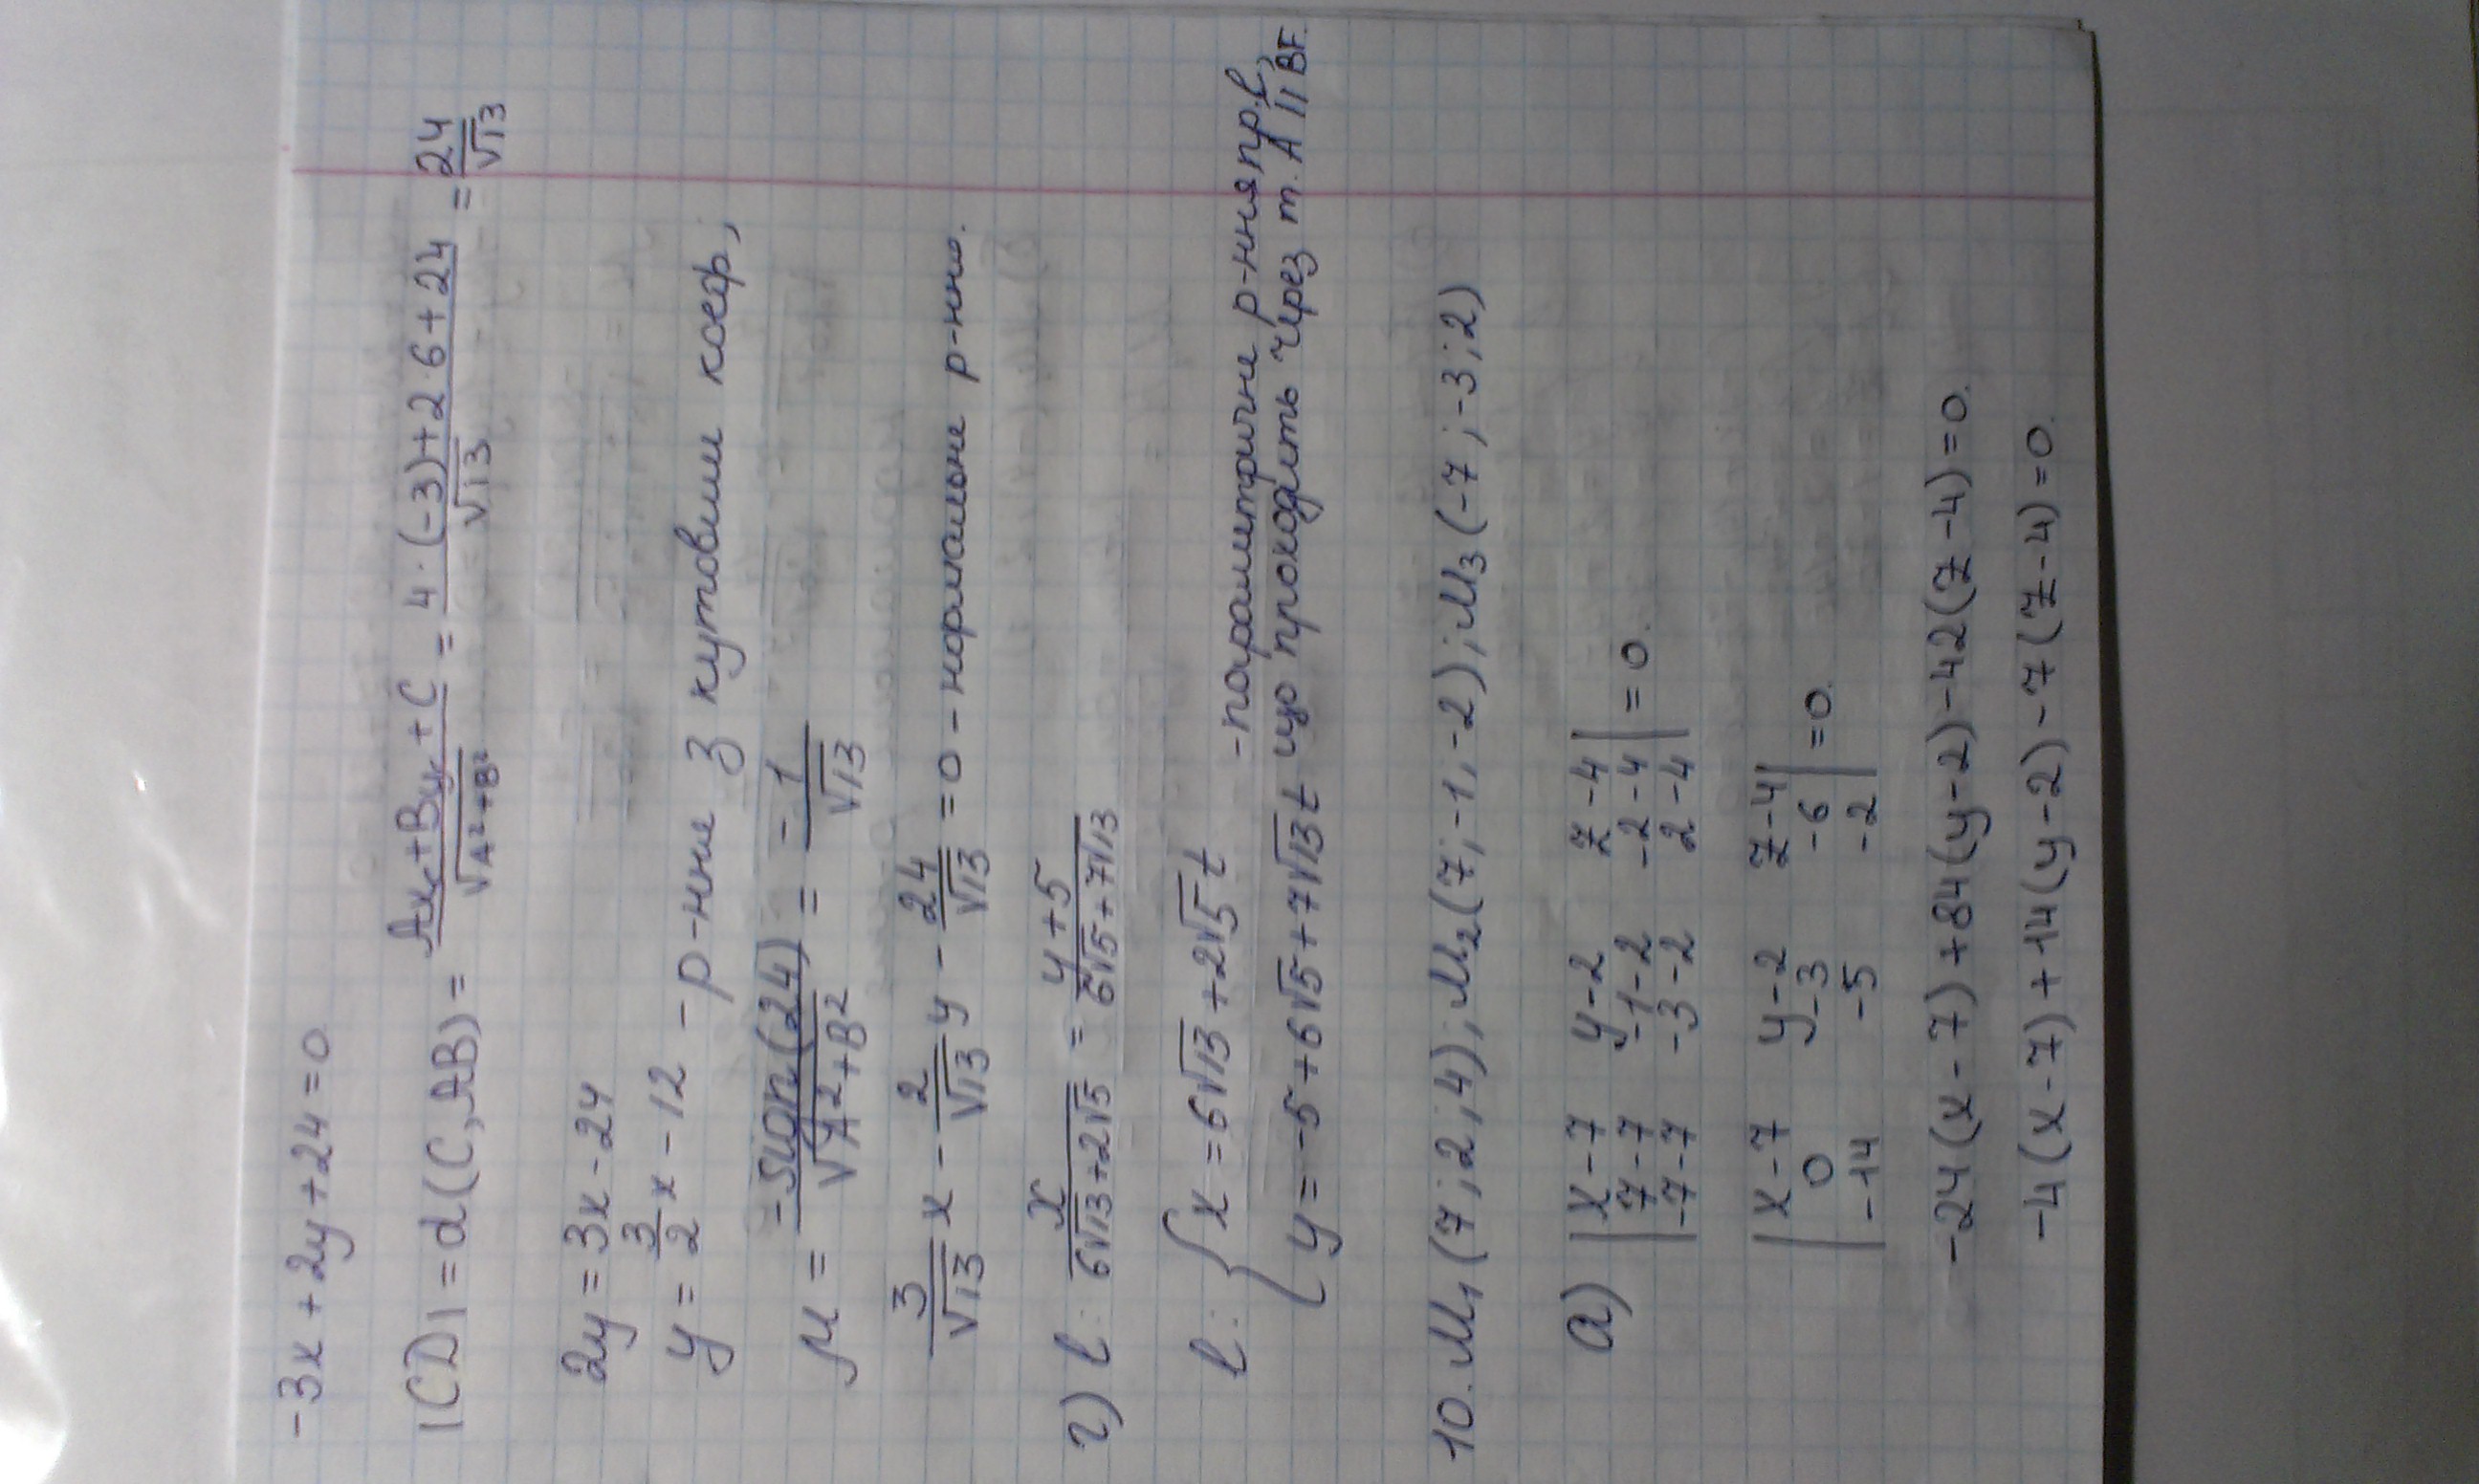 -3x + 2y + 24 = 0
|CD| = d(C, AB) = (Axc + Byc + C)/√(A² + B²) = (4·(-3) + 2·6 + 24)/√13 = 24/√13
2y = 3x - 24
y = 3/2 x - 12 - р-ння з кутовим коеф;
μ = -sign(24)/√(A² + B²) = -1/√13
3/√13 x - 2/√13 y - 24/√13 = 0 - нормальне р-ння.
г) l: x/(6√13 + 2√5) = (y + 5)/(6√5 + 7√13)
l: { x = 6√13 + 2√5 t - параметричне р-ння пр. l,
y = -5 + 6√5 + 7√13 t що проходить через т. A || BF.
10. M₁(7; 2; 4); M₂(7; -1, -2); M₃(-7; -3; 2)
а) | x-7 y-2 z-4 |
| 7-7 -1-2 -2-4 | = 0.
| -7-7 -3-2 2-4 |
| x-7 y-2 z-4 |
| 0 -3 -6 | = 0.
| -14 -5 -2 |
-24(x - 7) + 84(y - 2) - 42(z - 4) = 0.
-4(x - 7) + 14(y - 2) - 7(z - 4) = 0.